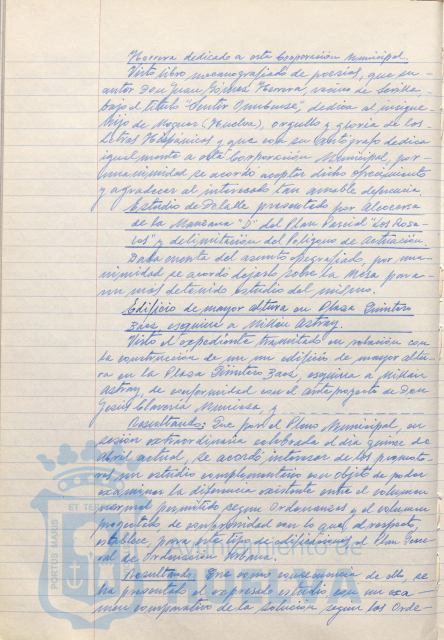 Herrera dedicado a esta Corporación Municipal.
Visto libro mecanografiado de poesías, que su
autor Don Juan Gómez Herrera, vecino de Sevilla
bajo el título "Cantor Onubense", dedica al insigne
hijo de Moguer (Huelva), orgullo y gloria de las
Letras Hispánicas y que con su autógrafo dedica
igualmente a esta Corporación Municipal, por
unanimidad, se acordó aceptar dicho ofrecimiento
y agradecer al interesado tan amable deferencia
Estudio de Detalle presentado por
de la Manzana "D" del Plan Parcial "Los Rosa-
les" y delimitación del Polígono de Actuación.
Dada cuenta del asunto epigrafiado, por una-
nimidad se acordó dejarlo sobre la Mesa para
un más detenido estudio del mismo.
Edificio de mayor altura en Plaza Quintero
Baez, esquina a Millán Astray.
Visto el expediente tramitado en relación con
la construcción de un edificio de mayor altu-
ra en la Plaza Quintero Baez, esquina a Millán
Astray, de conformidad con el anteproyecto de Don
Jesús Clavería y
Resultando: Que por el Pleno Municipal, en
sesión extraordinaria celebrada el día quince de
Abril actual, se acordó interesar de los promoto-
res un estudio complementario con objeto de poder
examinar la diferencia existente entre el volumen
normal permitido según Ordenanzas y el volumen
proyectado de conformidad con lo que, al respecto,
establece, para este tipo de edificaciones el Plan Gene-
ral de Ordenación Urbana.
Resultando: Que como consecuencia de ello, se
ha presentado el expresado estudio con un exa-
men comparativo de la solución según las Orde-
PORTUS MARIS
ET TE
Ayuntamiento de
HUELVA